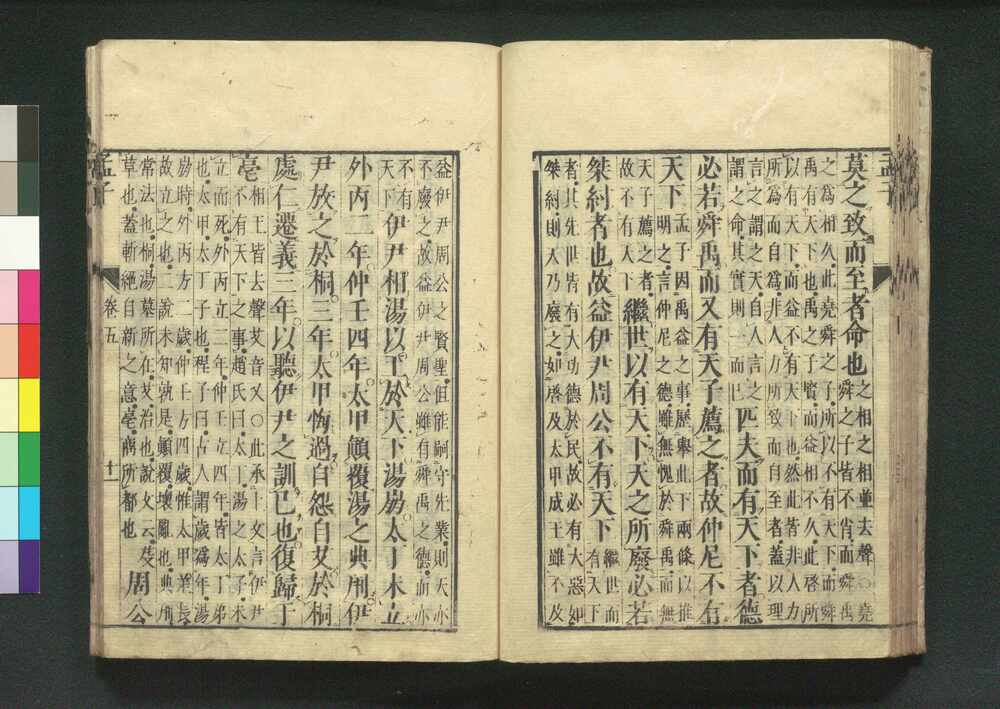 莫之致而至者命也之相之相並去聲○堯舜之子皆不肖而舜禹
之為相久此堯舜之子所以不有天下而舜
禹有天下也禹之子賢而益相不久此啓所
以有天下而益不有天下也然此皆非人力
所為而自為非人力所致而自至者蓋以理
言之謂之天自人言之
謂之命其實則一而已匹夫而有天下者德
必若舜禹而又有天子薦之者故仲尼不有
天下孟子因禹益之事歷舉此下兩條以推
明之言仲尼之德雖無愧於舜禹而無
天子薦之者
故不有天下繼世以有天下天之所廢必若
桀紂者也故益伊尹周公不有天下繼世而有天下
者其先世皆有大功德於民故必有大惡如
桀紂則天乃廢之如啓及太甲成王雖不及
益伊尹周公之賢聖但能嗣守先業則天亦
不廢之故益伊尹周公雖有舜禹之德而亦
不有天下伊尹相湯以王於天下湯崩太丁未立
外丙二年仲壬四年太甲顛覆湯之典刑伊
尹放之於桐三年太甲悔過自怨自艾於桐
處仁遷義三年以聽伊尹之訓已也復歸于
亳相王皆去聲艾音乂○此承上文言伊尹
不有天下之事趙氏曰太丁湯之太子未
立而死外丙立二年仲壬立四年皆太丁弟
也太甲太丁子也程子曰古人謂歲為年湯
崩時外丙方二歲仲壬方四歲惟太甲差長
故立之也二說未知孰是顛覆壞亂也典刑
常法也桐湯墓所在艾治也說文云芟
草也蓋斬絕自新之意亳商所都也周公
孟子
卷五
十一
孟子